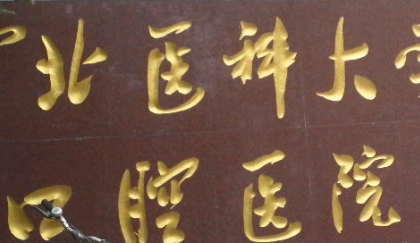 北医科大学
口腔医院